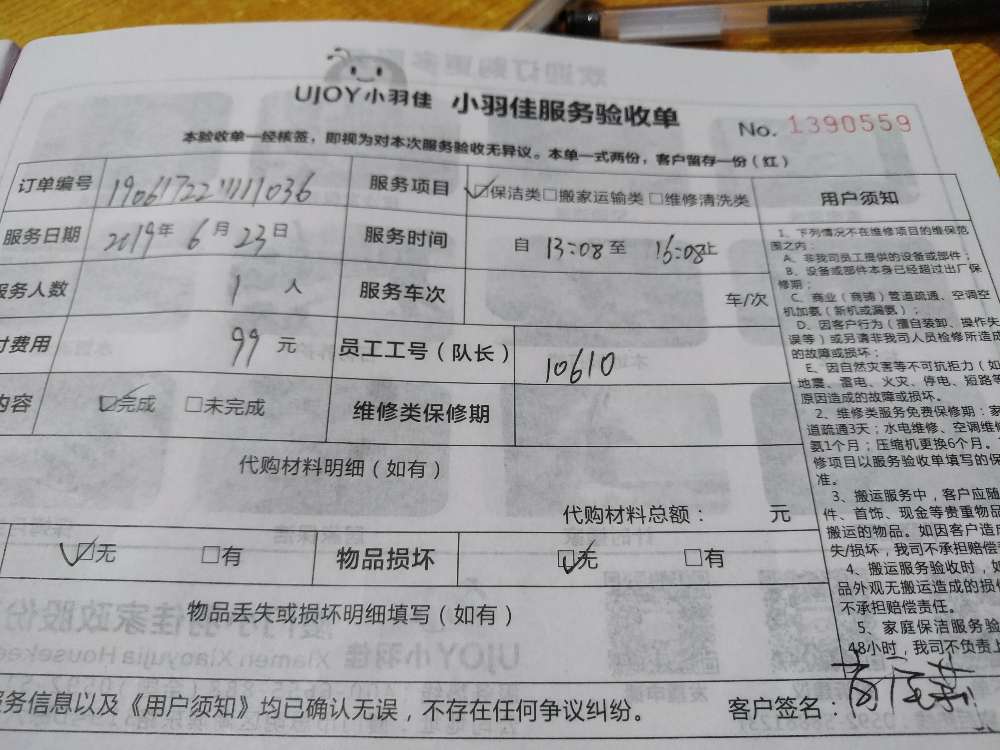 UJOY小羽佳 小羽佳服务验收单
No. 1390559
本验收单一经核签，即视为对本次服务验收无异议。本单一式两份，客户留存一份（红）
订单编号 服务项目 ☑保洁类□搬家运输类□维修清洗类 用户须知
服务日期 2019年 6月 23日 服务时间 自 13:08至 16:08止
服务人数 1 人 服务车次 车/次
付费用 99 元 员工工号（队长） 10610
内容 ☑完成 □未完成 维修类保修期
代购材料明细（如有）
代购材料总额： 元
☑无 □有 物品损坏 ☑无 □有
物品丢失或损坏明细填写（如有）
服务信息以及《用户须知》均已确认无误，不存在任何争议纠纷。 客户签名：
1、下列情况不在维修项目的维保范
围之内：
A、非我司员工提供的设备或部件；
B、设备或部件本身已经超过出厂保
修期；
C、商业（商铺）管道疏通、空调空
机加氨（新机或漏氨）；
D、因客户行为（擅自装卸、操作失
误等）或另请非我司人员检修所造成
的故障或损坏；
E、因自然灾害等不可抗拒力（如
地震、雷电、火灾、停电、短路等
原因造成的故障或损坏。
2、维修类服务免费保修期：家
道疏通3天；水电维修、空调维修
氨1个月；压缩机更换6个月。
修项目以服务验收单填写的保
准。
3、搬运服务中，客户应随
件、首饰、现金等贵重物品
搬运的物品。如因客户造成
失/损坏，我司不承担赔偿责
4、搬运服务验收时，如
品外观无搬运造成的损
不承担赔偿责任。
5、家庭保洁服务验
48小时，我司不负责上